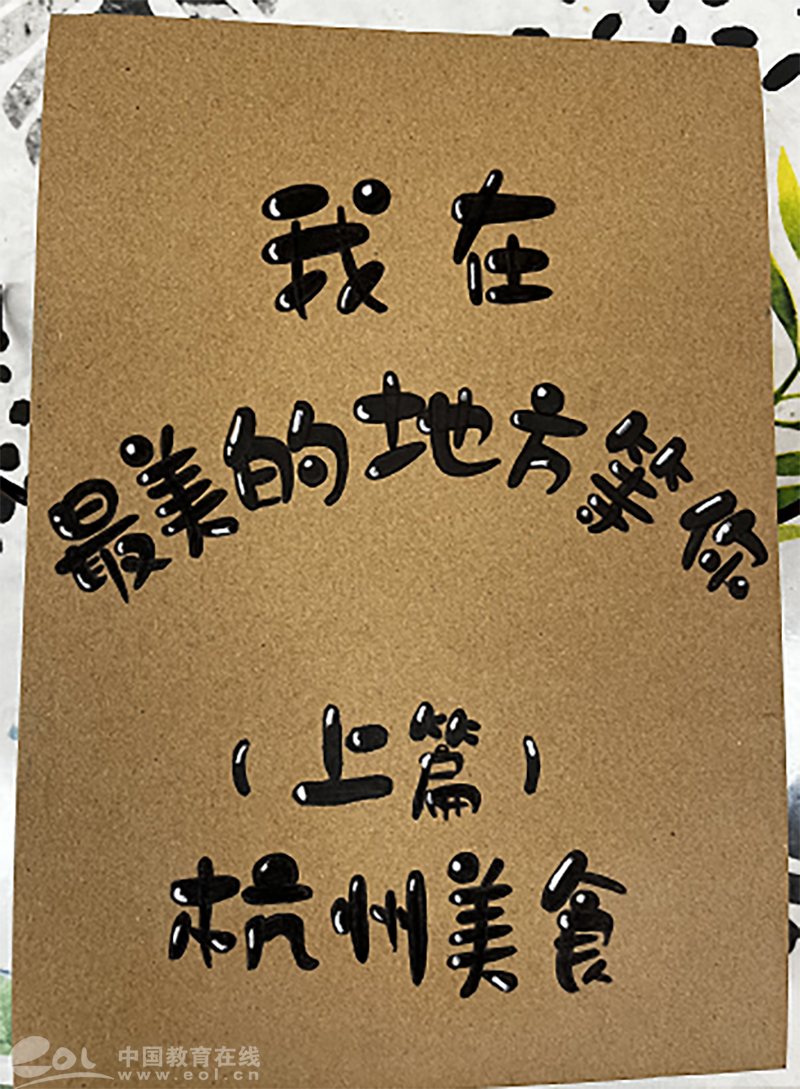 我在
最美的地方等你
（上篇）
杭州美食
eol 中国教育在线
www.eol.cn